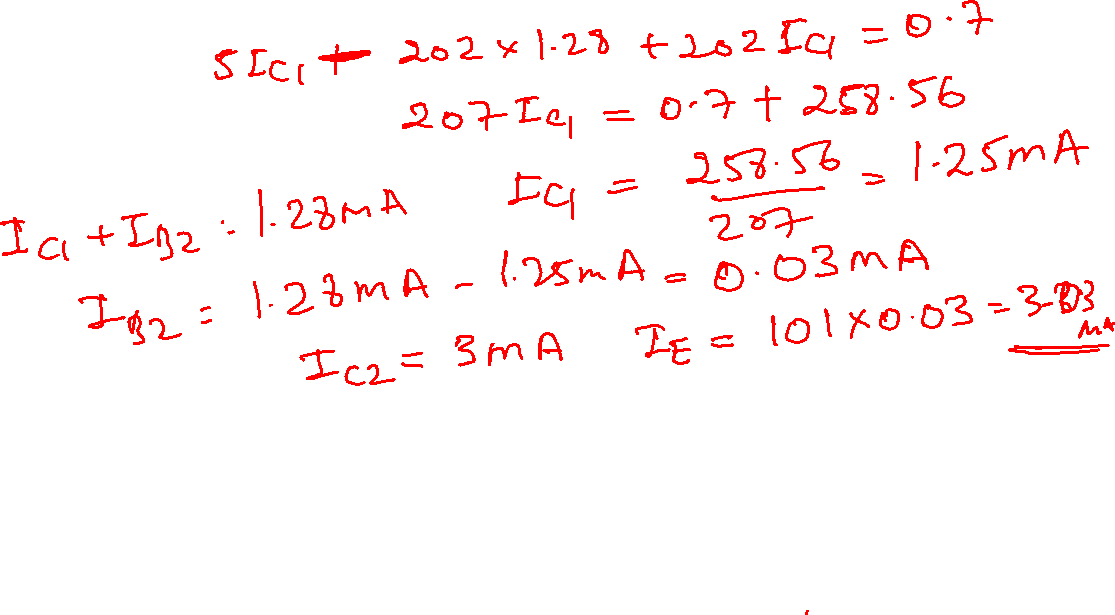 5I_C1 + 202 × 1.28 + 202 I_C1 = 0.7
207 I_C1 = 0.7 + 258.56
I_C1 = 258.56 / 207 = 1.25mA
I_C1 + I_B2 = 1.28mA
I_B2 = 1.28mA - 1.25mA = 0.03mA
I_C2 = 3mA I_E = 101×0.03 = 3.03 mA